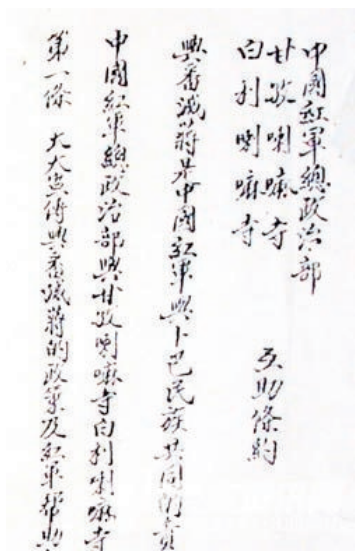 中國紅軍總政治部
甘孜喇嘛寺
白利喇嘛寺
互助條約
興番滅蔣是中國紅軍與卜巴民族共同的責
中國紅軍總政治部與甘孜喇嘛寺白利喇嘛寺
第一條 大大宣傳興番滅蔣的政策及紅軍幫助